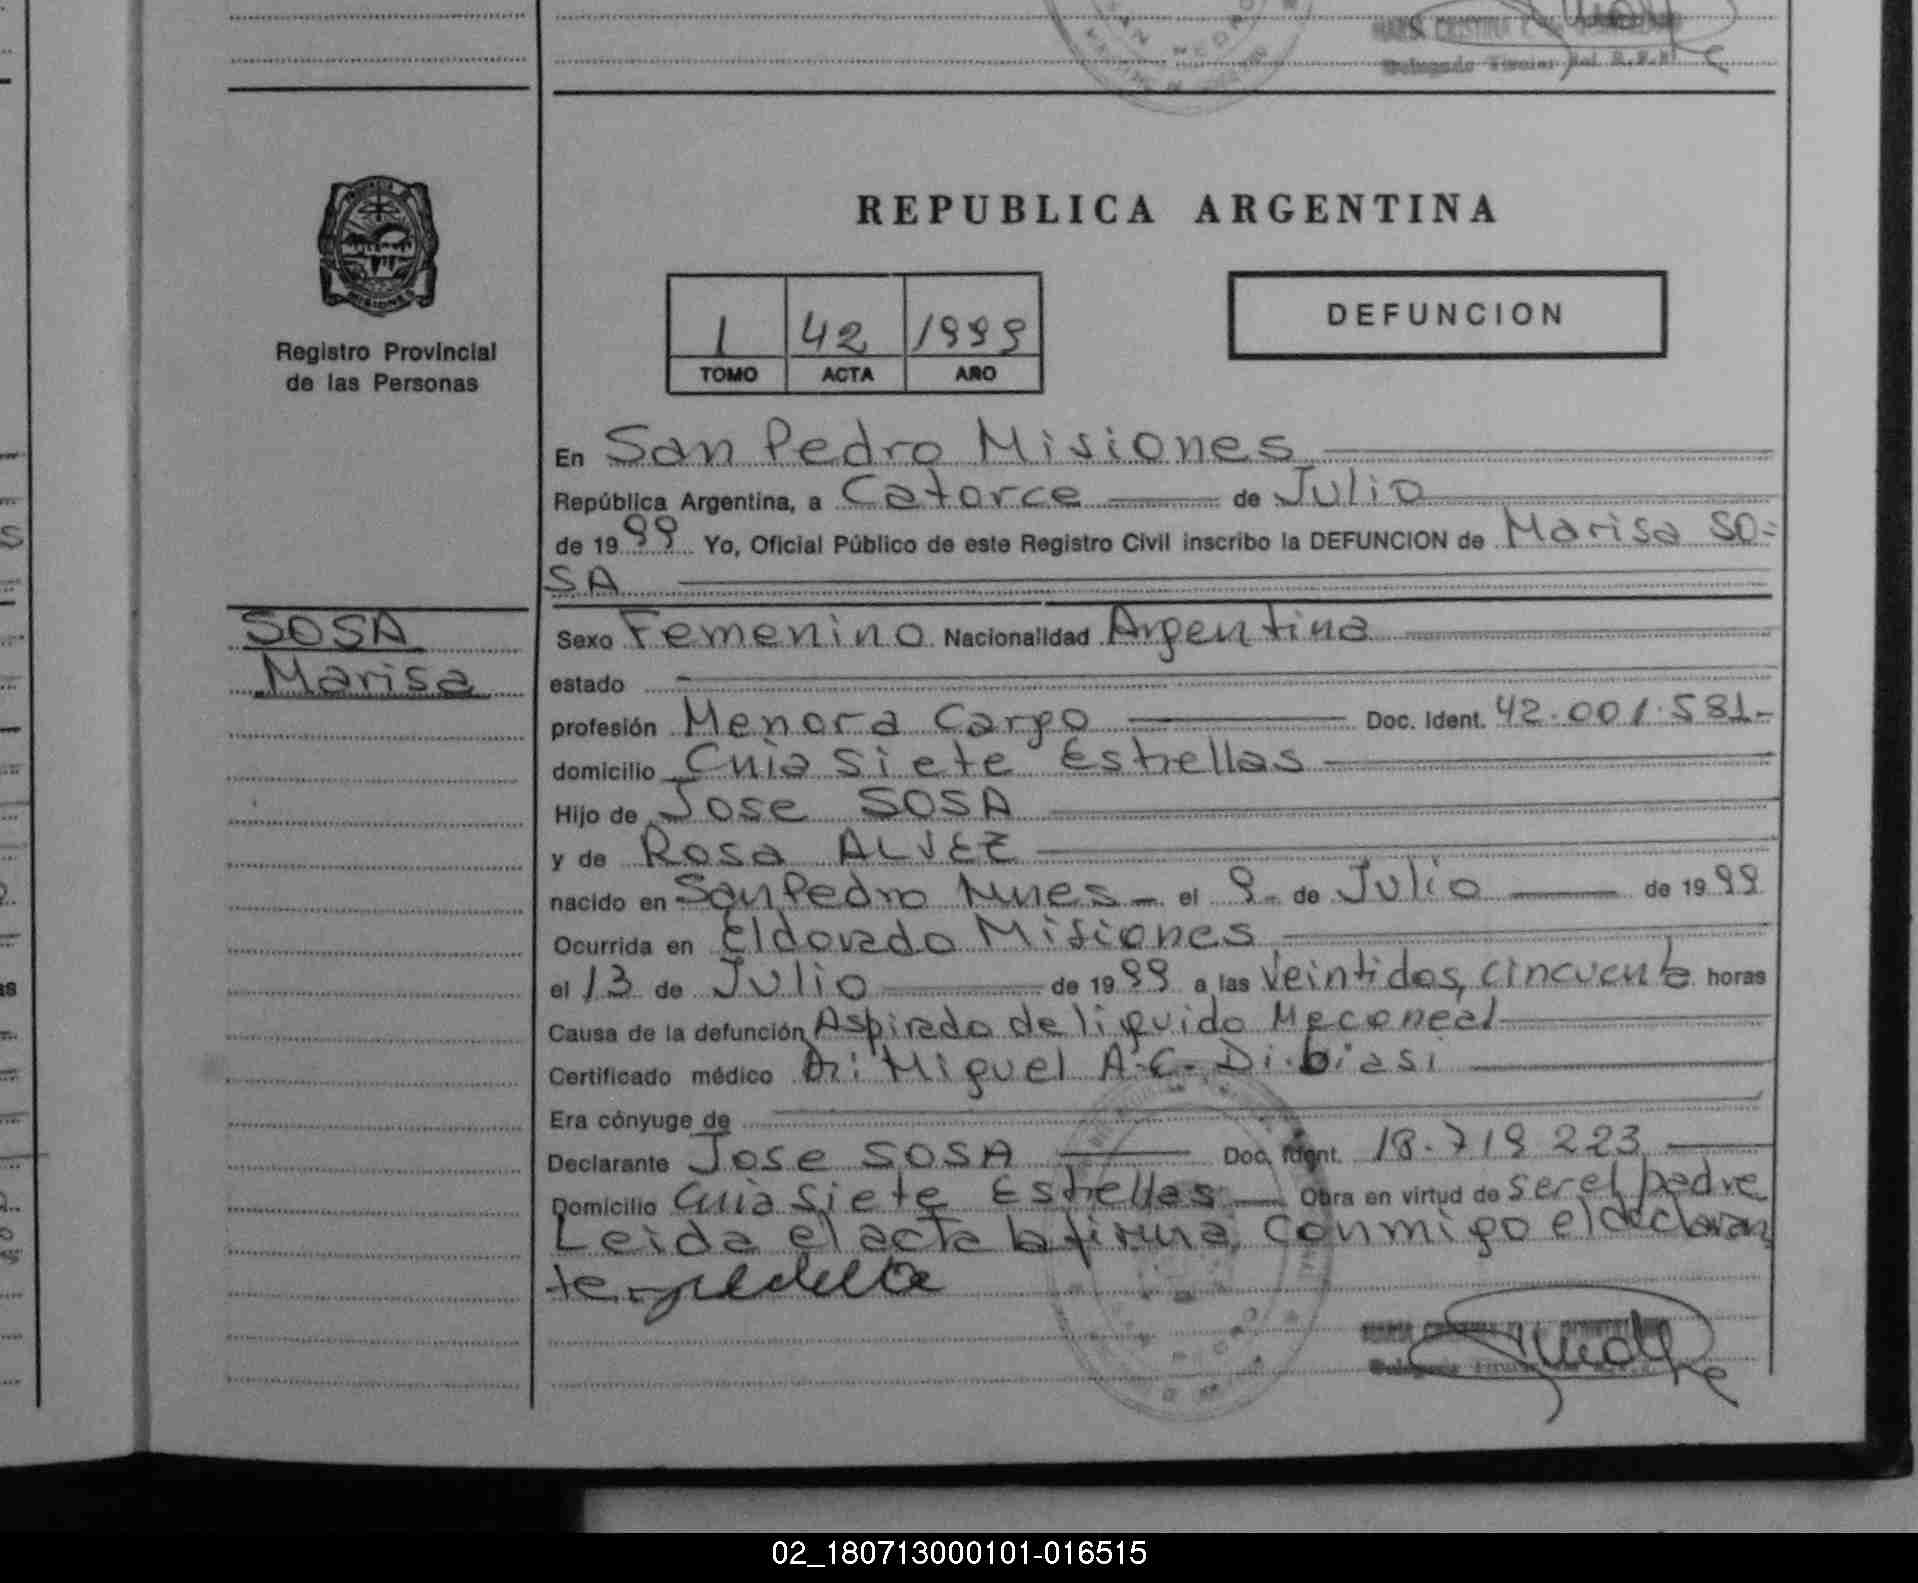 REPUBLICA ARGENTINA
PROVINCIA
MISIONES
Registro Provincial
de las Personas
1 42 1999
TOMO ACTA AÑO
DEFUNCION
En San Pedro Misiones
República Argentina, a Catorce de Julio
de 1999 Yo, Oficial Público de este Registro Civil inscribo la DEFUNCION de Marisa SO=
SA
SOSA
Marisa
Sexo Femenino Nacionalidad Argentina
estado
profesión Menora Cargo Doc. Ident. 42.001.581-
domicilio Cuia Siete Estrellas
Hijo de Jose SOSA
y de Rosa ALVEZ
nacido en San Pedro Mnes - el 9- de Julio de 1999
Ocurrida en Eldorado Misiones
el 13 de Julio de 1999 a las Veintidos, cincuenta horas
Causa de la defunción Aspirado de liquido Meconeal
Certificado médico Dr: Miguel A-C- Di.biasi
Era cónyuge de
Declarante Jose SOSA Doc. Ident. 18.719 223
Domicilio Cuia Siete Estrellas Obra en virtud de ser el padre
Leida el acta la firma, conmigo el declaran
te.
02_180713000101-016515